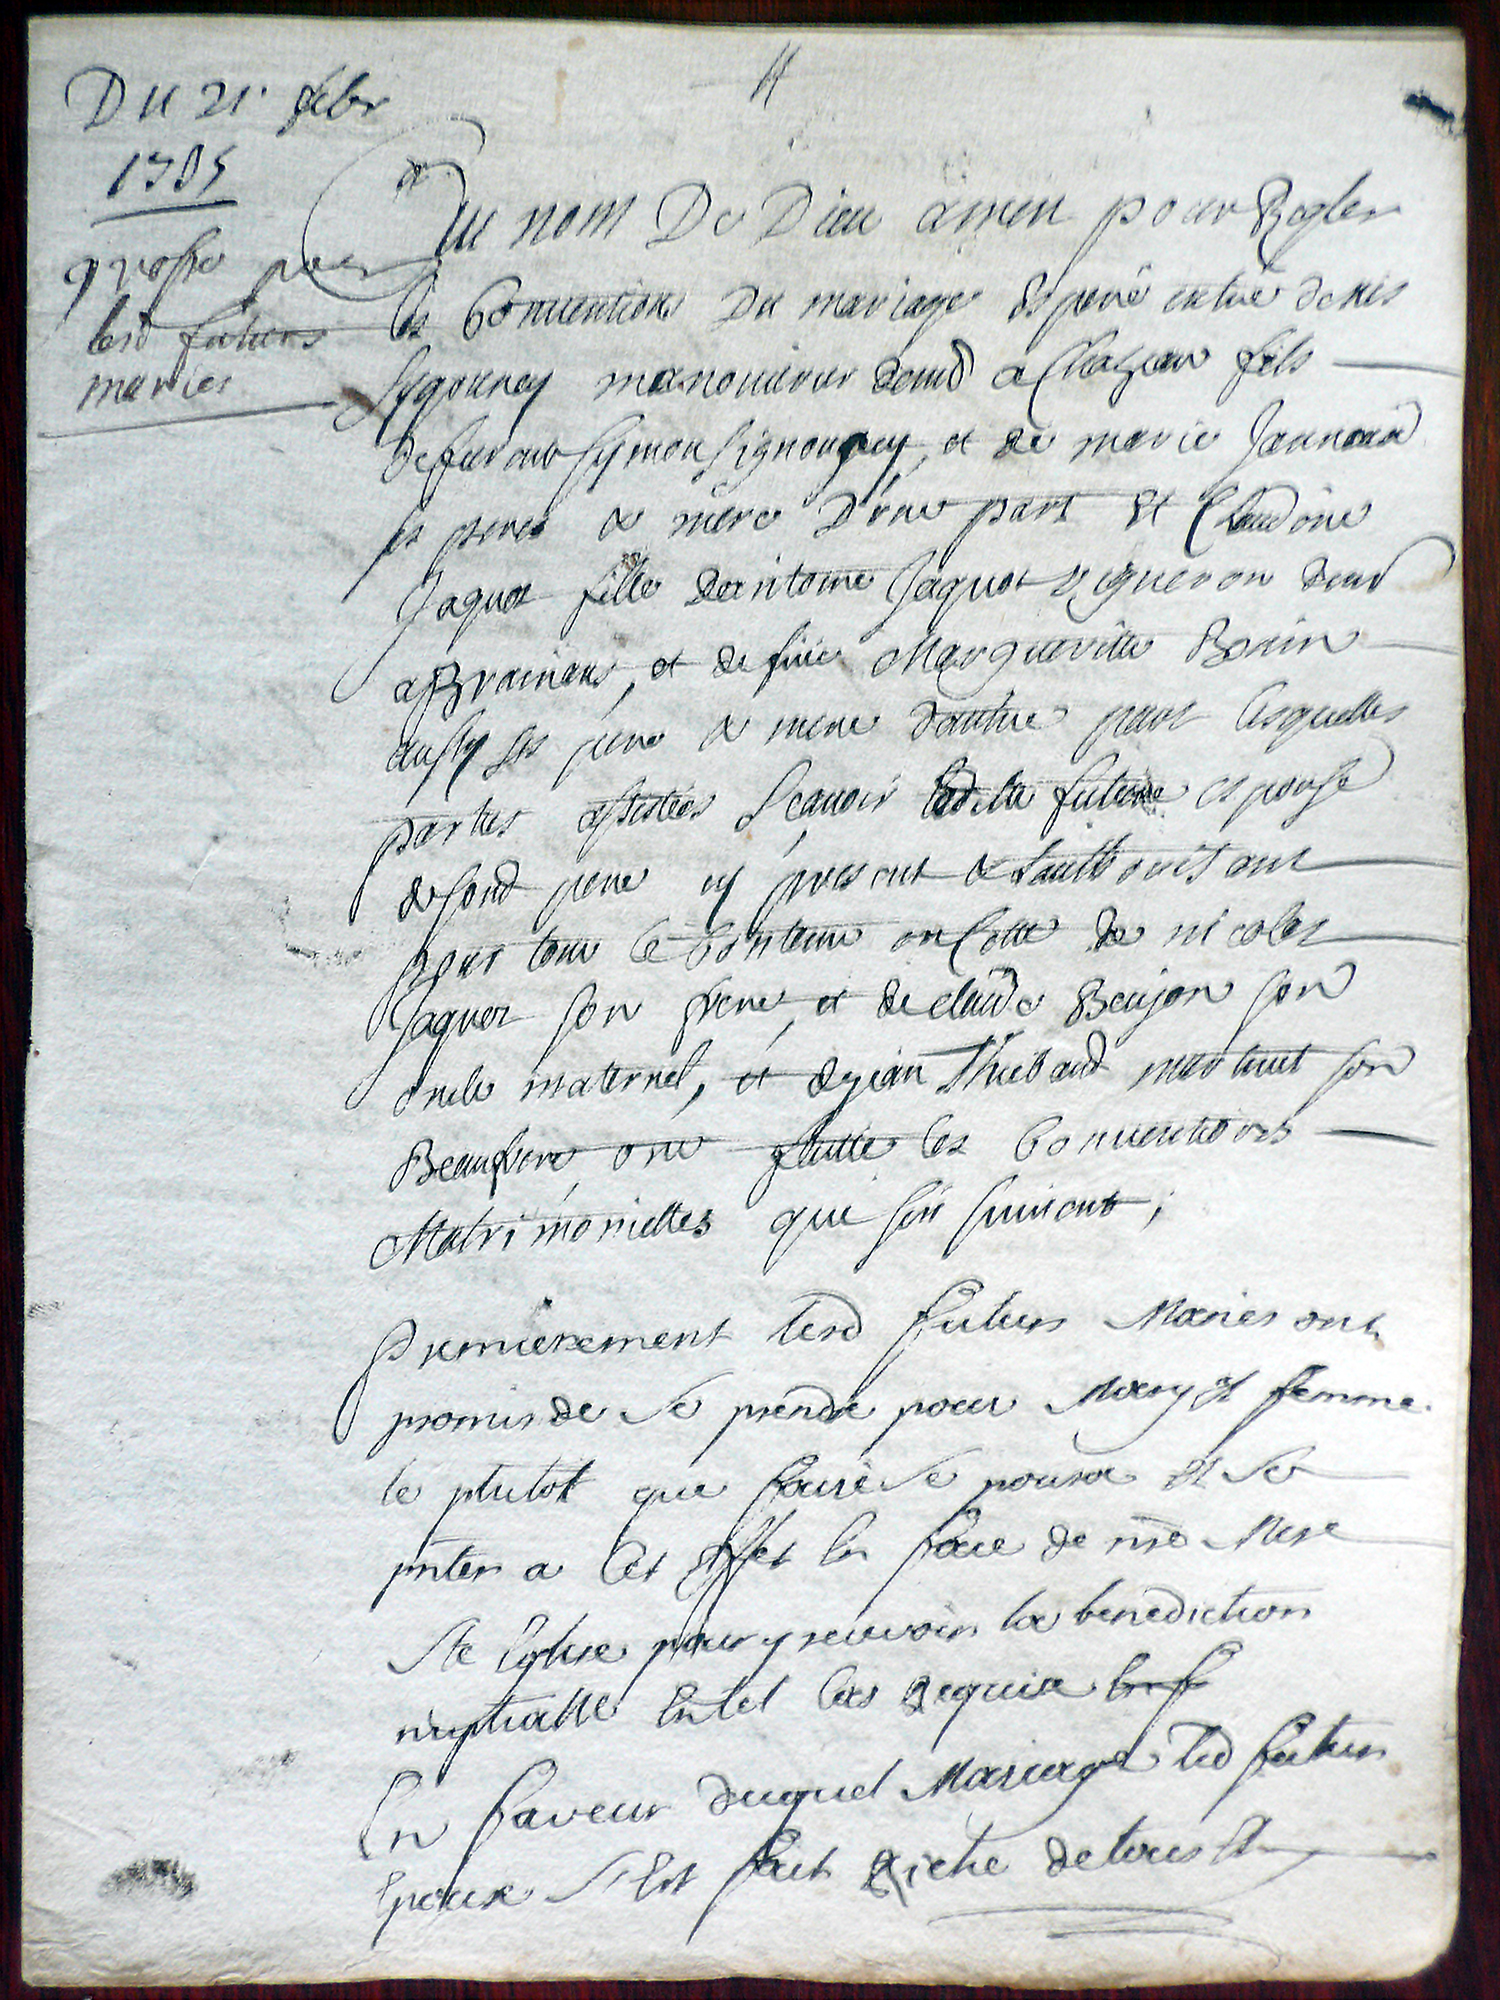 Du 21. febr
1705
grosse pour
lesd futurs
mariés
Au nom De Dieu amen pour Regler
les Conuentions Du mariage Esperé entre denis
Sygouney manouvrier demt a Chazeau fils
defeu Symon Signougey, et de marie Jannena
ses peres & mere D'une part Et Claudine
Jaquot fille dantoine Jaquot vigneron demt
a Brainans, et de füe Margueritte Boain
aussy ses pere & mere dautre part lesquelles
parties assistées Scauoir lad. future espouse
de sond pere cy present & lauthorisant
pour tout le Contenu en Cette de nicolas
Jaquot son frere, et de claude Beujon son
oncle maternel, et de jean Thiebaud martinet son
Beaufrere, ont faitte les Conuentions
Matrimonielles que sen suiuent;
Premierement lesd futurs Mariés ont
promis de se prendre pour Mary et femme
le plutot que faire se poura et se
pnter a Cet Effet En face de nre Mere
Ste Eglise pour y recevoir la benediction
nuptialle En tel Cas Requise
En faveur duquel Mariage led futur
Epoux s'Est fait Riche de tous et